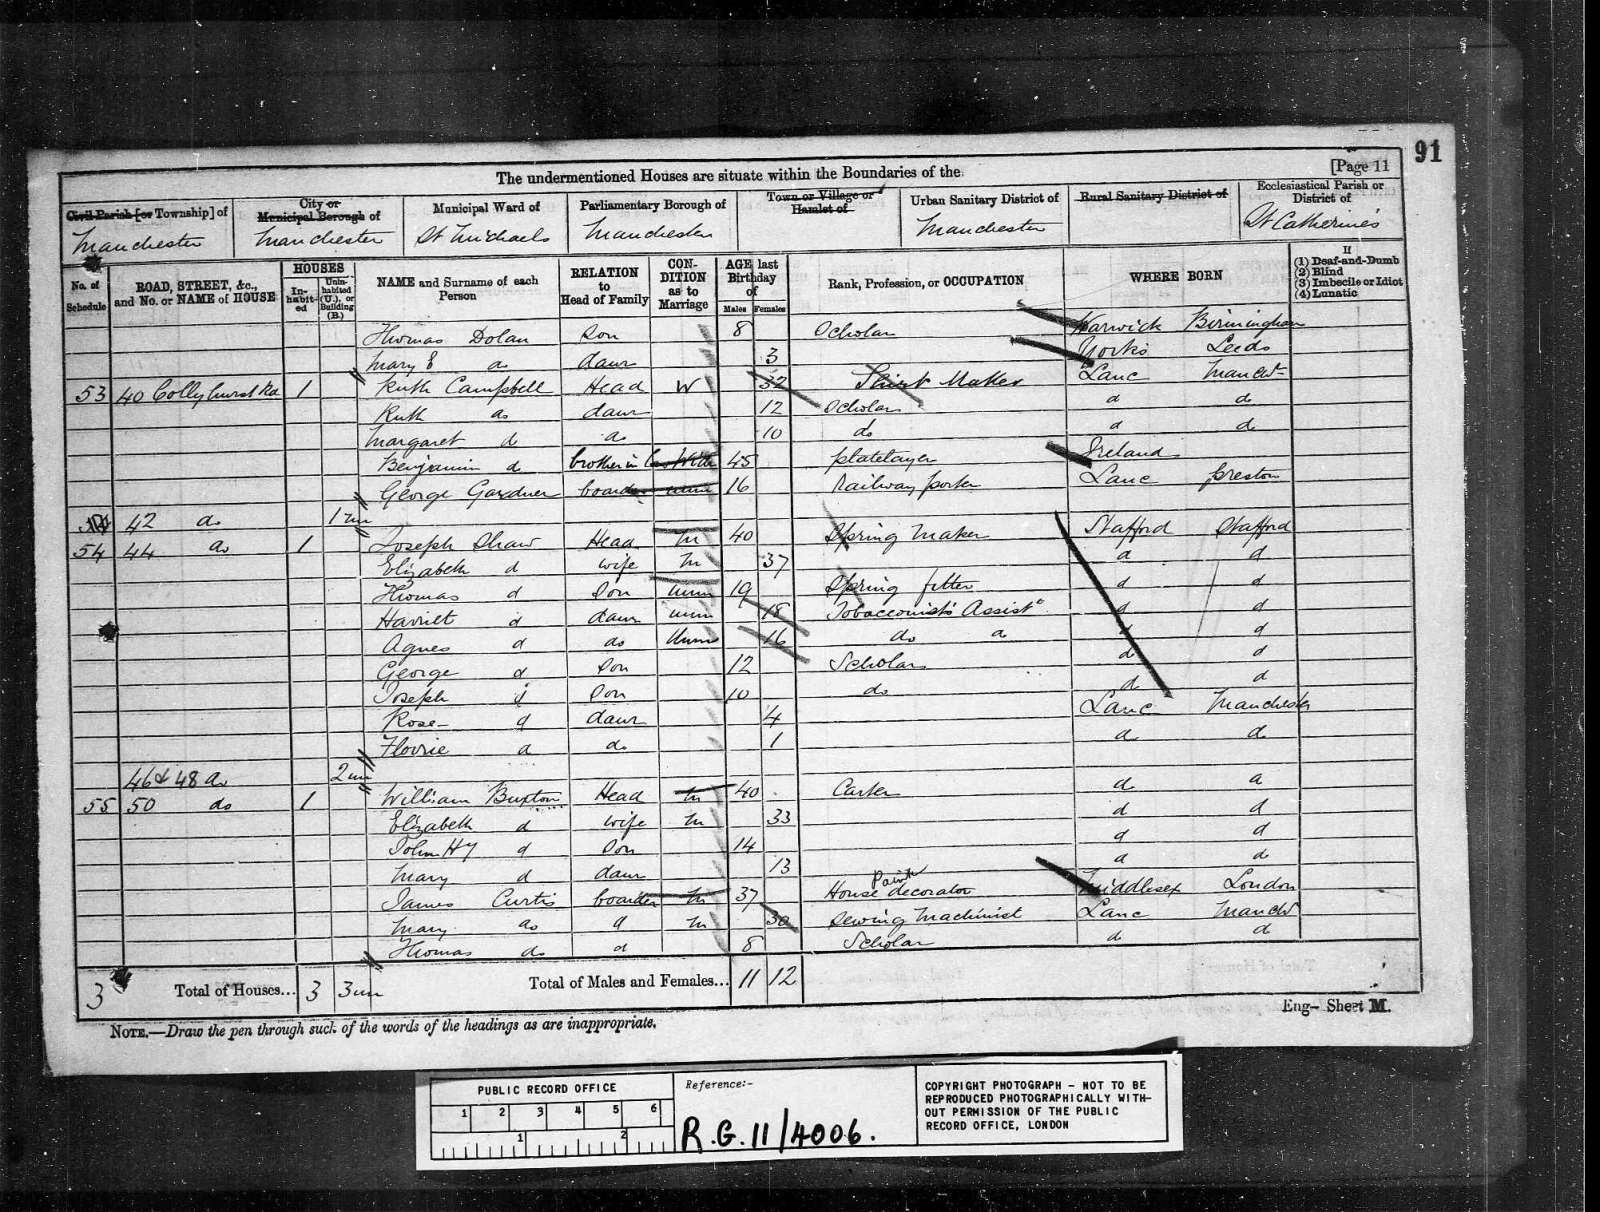 91
[Page 11
The undermentioned Houses are situate within the Boundaries of the
Civil Parish [or Township] of
Manchester
City or Municipal Borough of
Manchester
Municipal Ward of
St Michaels
Parliamentary Borough of
Manchester
Town or Village or Hamlet of
Urban Sanitary District of
Manchester
Rural Sanitary District of
Ecclesiastical Parish or District of
St Catherine's
No. of Schedule
ROAD, STREET, &c., and No. or NAME of HOUSE
HOUSES
In-habit-ed
Unin-habited (U.), or Building (B.)
NAME and Surname of each Person
RELATION to Head of Family
CON-DITION as to Marriage
AGE last Birthday of
Males Females
Rank, Profession, or OCCUPATION
WHERE BORN
If
(1) Deaf-and-Dumb
(2) Blind
(3) Imbecile or Idiot
(4) Lunatic
Thomas Dolan Son 8 Scholar Warwick Birmingham
Mary E do daur 3 Yorks Leeds
53 40 Collyhurst Rd 1 Ruth Campbell Head W 32 Shirt Maker Lanc Manchr
Ruth do daur 12 Scholar d d
Margaret d do 10 do d d
Benjamin d brother in 45 platelayer Ireland
George Gardner boarder unm 16 Railway porter Lanc Preston
42 do 1 un
54 44 do 1 Joseph Shaw Head M 40 Spring Maker Stafford Stafford
Elizabeth d wife M 37 d d
Thomas d Son unm 19 Spring fitter d d
Harriet d daur unm 18 Tobacconists Assist d d
Agnes d do Unm 16 do d d d
George d Son 12 Scholar d d
Joseph d Son 10 do d d
Rose d daur 4 Lanc Manchester
Florrie d do 1 d do
46 & 48 do 2 un
55 50 do 1 William Buxton Head M 40 Carter d d
Elizabeth d wife M 33 d d
John Hy d Son 14 d d
Mary d daur 13 d d
James Curtis boarder M 37 House Paint decorator Middlesex London
Mary do d M 30 Sewing Machinist Lanc Manchr
Thomas do d 8 Scholar d d
3 Total of Houses... 3 3 un Total of Males and Females... 11 12
NOTE.—Draw the pen through such of the words of the headings as are inappropriate.
Eng— Sheet M.
PUBLIC RECORD OFFICE
1 2 3 4 5 6
1 2
Reference:-
R.G. 11/4006.
COPYRIGHT PHOTOGRAPH - NOT TO BE
REPRODUCED PHOTOGRAPHICALLY WITH-
OUT PERMISSION OF THE PUBLIC
RECORD OFFICE, LONDON